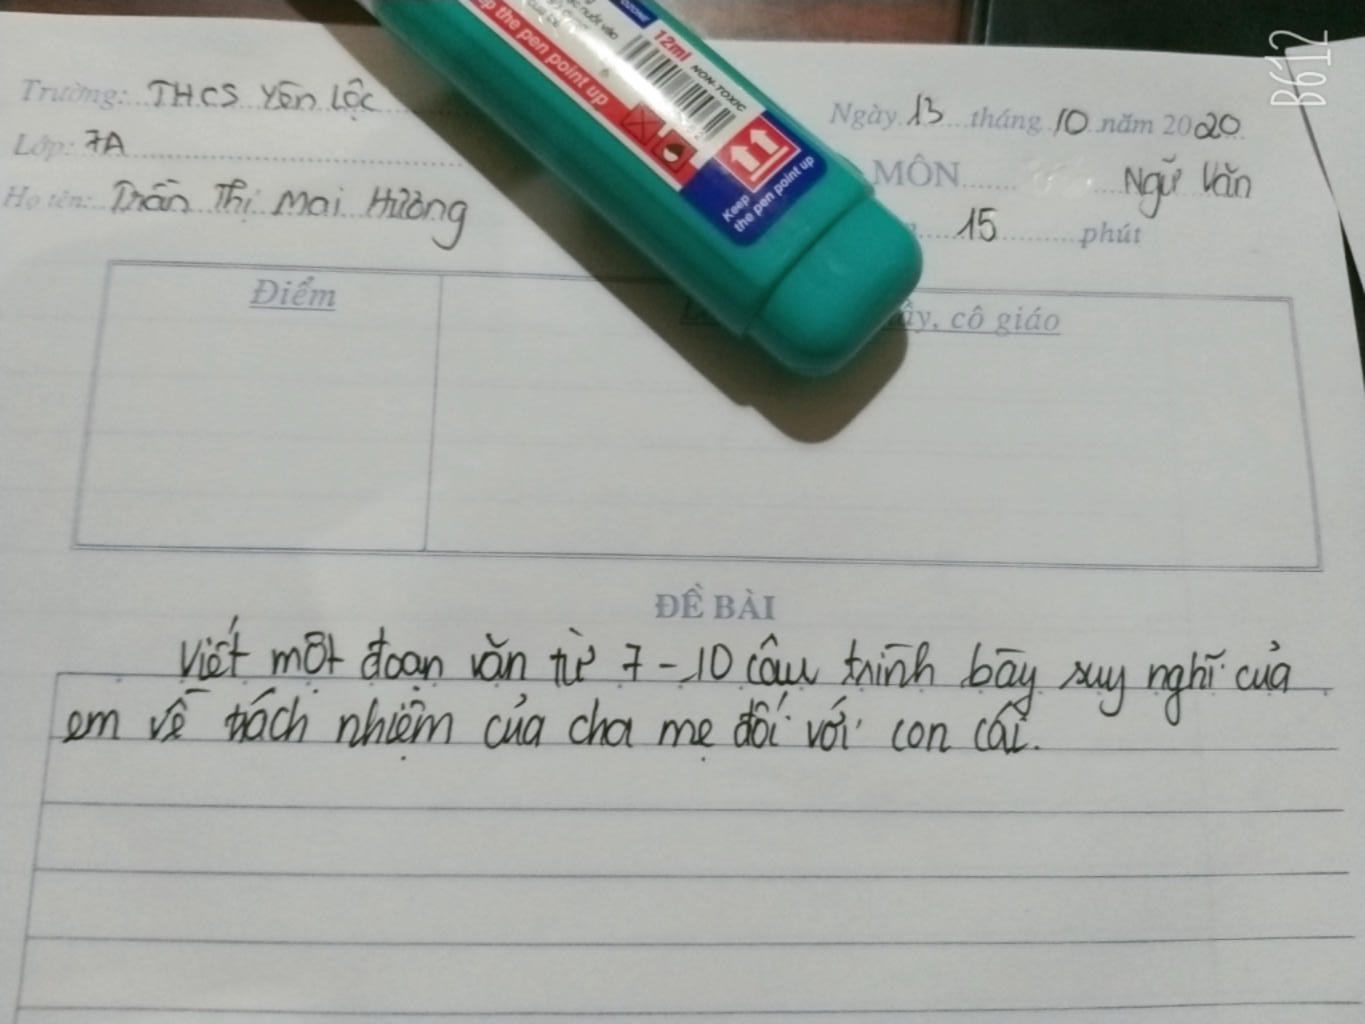 12ml
NON-TOXIC
Keep the pen point up
Keep
the pen point up
B612
Trường: THCS Yên Lộc
Ngày 13 tháng 10 năm 2020
Lớp: 7A
MÔN Ngữ Văn
Họ tên: Trần Thị Mai Hường
15 phút
Điểm
ầy, cô giáo
ĐỀ BÀI
Viết một đoạn văn từ 7-10 câu trình bày suy nghĩ của
em về trách nhiệm của cha mẹ đối với con cái.